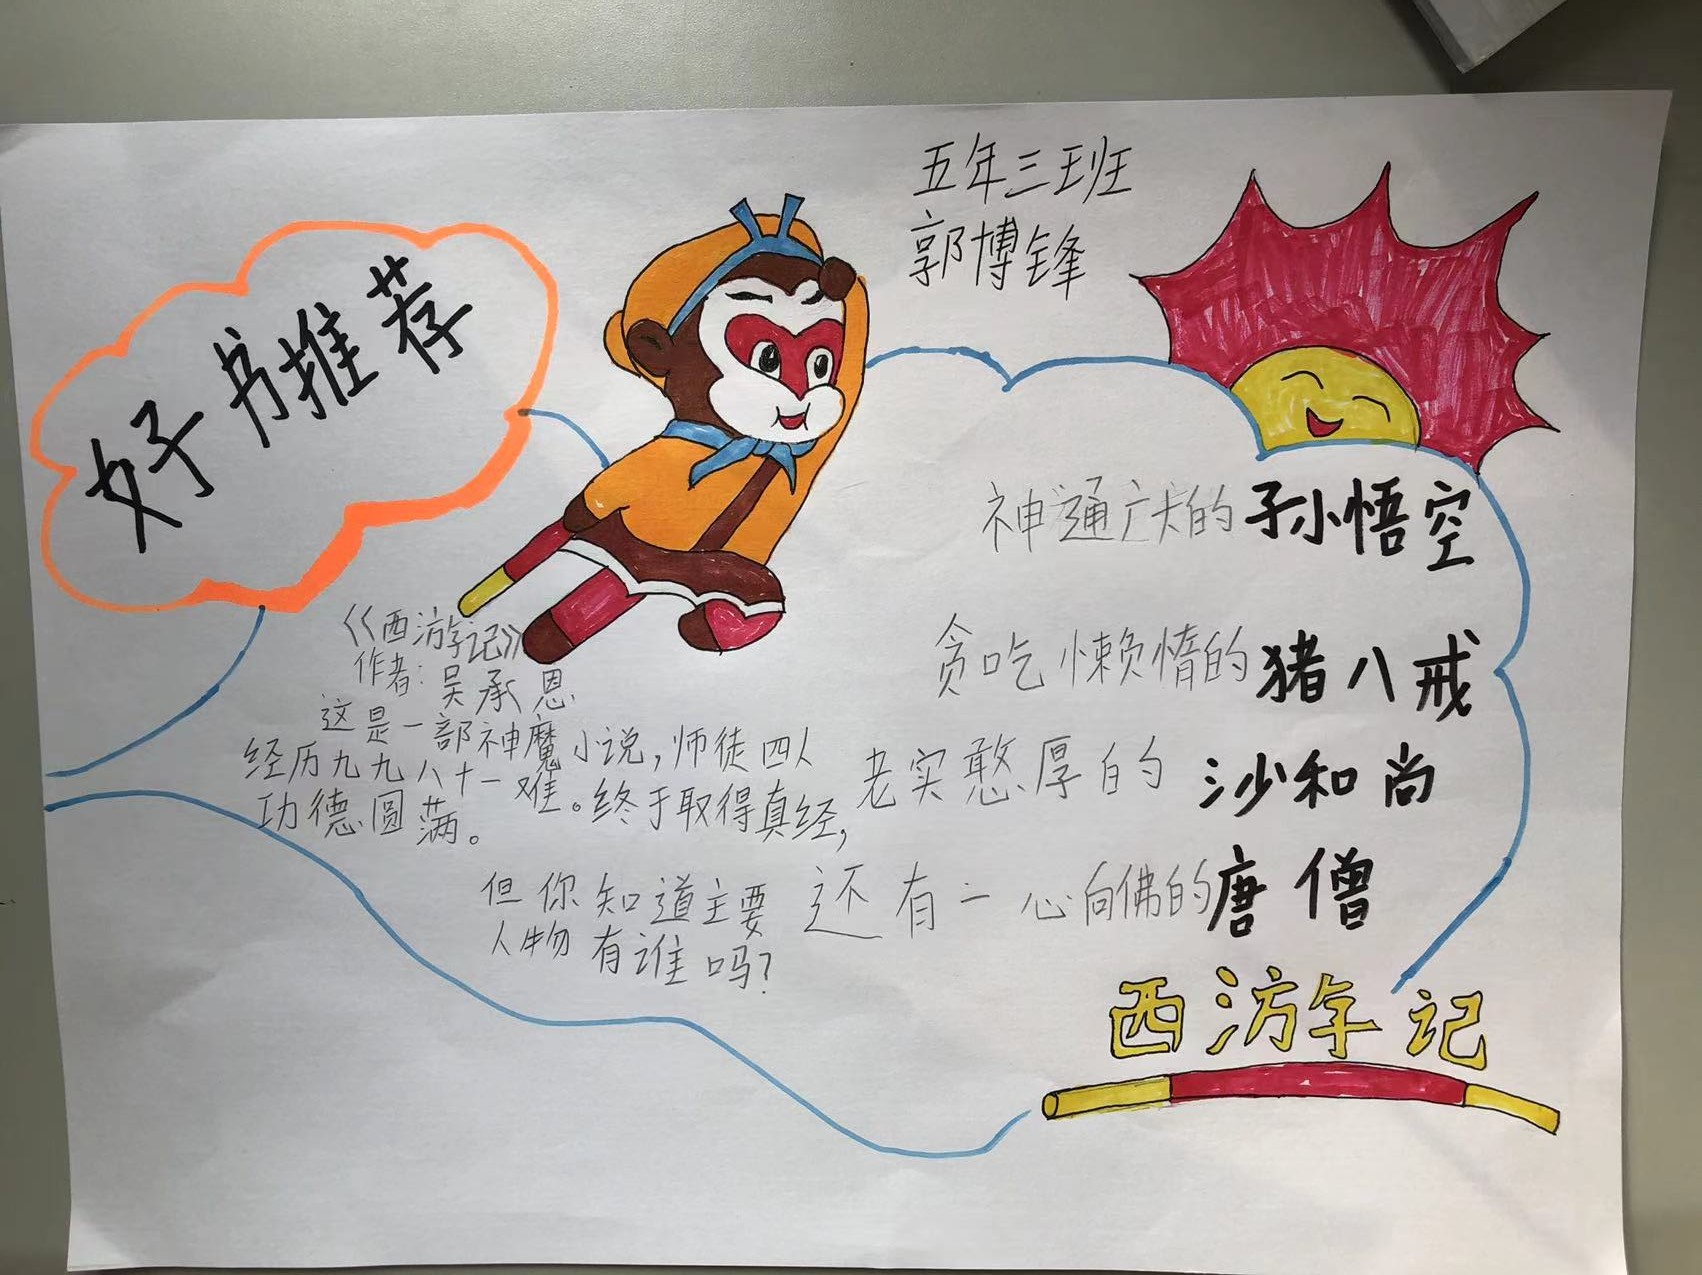 好书推荐
五年三班
郭博锋
《西游记》
作者:吴承恩
这是一部神魔小说,师徒四人
经历九九八十一难。终于取得真经,
功德圆满。
但你知道主要
人物有谁吗?
神通广大的孙悟空
贪吃懒惰的猪八戒
老实憨厚的沙和尚
还有一心向佛的唐僧
西游记